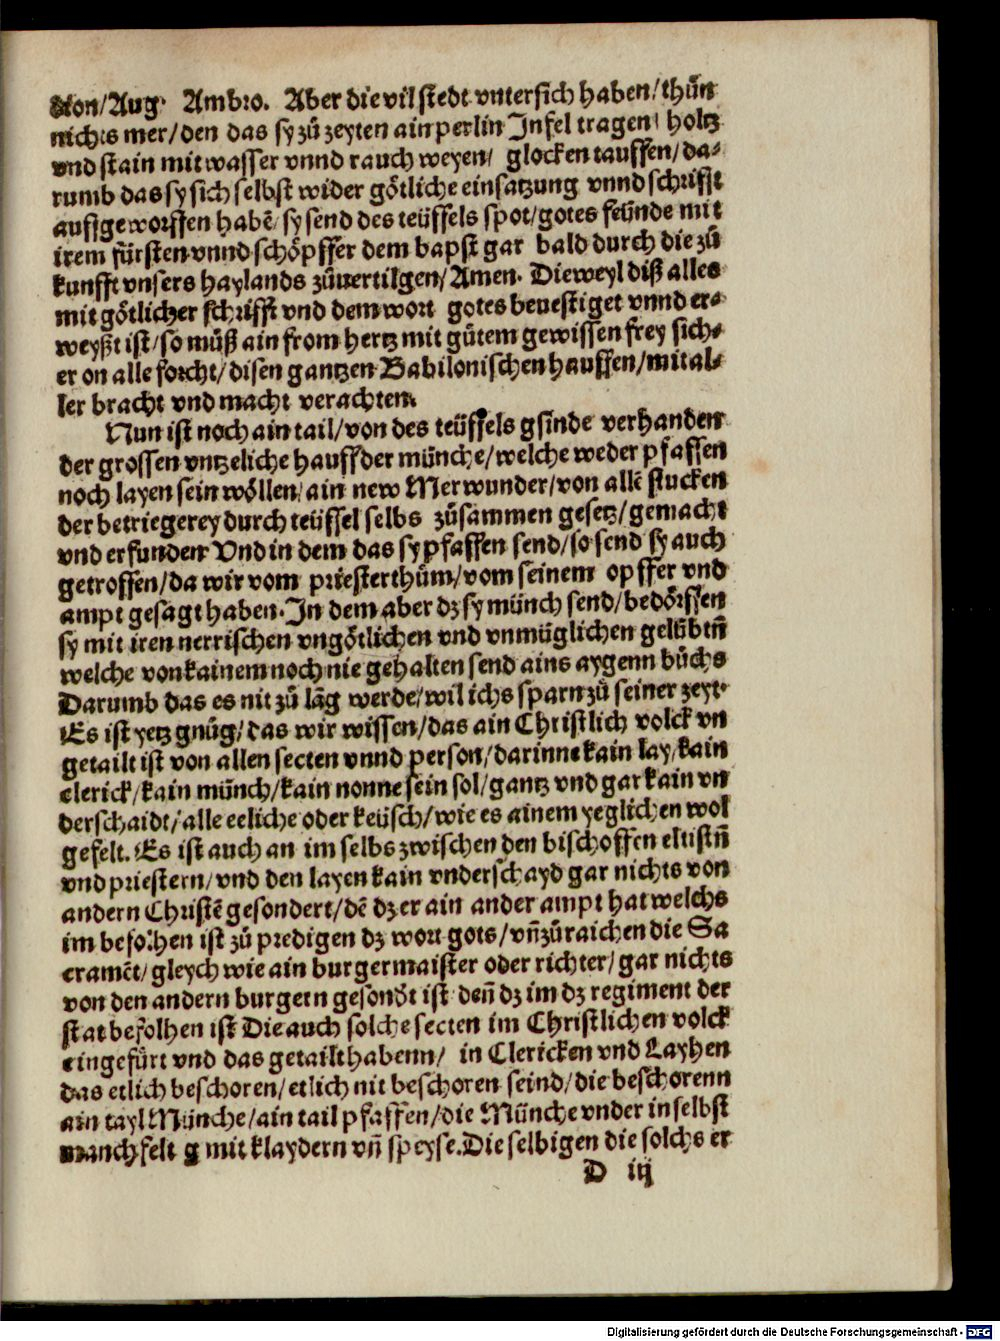 dion/Aug. Ambro. Aber die vil stedt vntersich haben/thůn
nichts mer/den das sy zů zeyten ain perlin Jnfel tragen/ holtz
vnd stain mit wasser vnnd rauch weyen/ glocken tauffen/da-
rumb das sy sich selbst wider götliche einsatzung vnnd schrifft
auffgeworffen habẽ/sy send des teüffels spot/gotes feünde mit
irem fürsten vnnd schöpffer dem bapst gar bald durch die zů
kunfft vnsers haylands zůuertilgen/Amen. Dieweyl diß alles
mit götlicher schrifft vnd dem wort gotes beuestiget vnnd er-
weyßt ist/so můß ain from hertz mit gůtem gewissen frey sich-
er on alle forcht/disen gantzen Babilonischen hauffen/mit al-
ler bracht vnd macht verachten.
Nun ist noch ain tail/von des teüffels gsinde verhanden
der grossen vntzeliche hauff der münche/welche weder pfaffen
noch layen sein wöllen/ain new Merwunder/von allẽ stucken
der betriegerey durch teüffel selbs zůsammen gesetz/gemacht
vnd erfunden Vnd in dem das sy pfaffen send/so send sy auch
getroffen/da wir vom priesterthům/vom seinem opffer vnd
ampt gesagt haben. Jn dem aber dz sy münch send/bedörffen
sy mit iren nerrischen vngötlichen vnd vnmüglichen gelübtñ
welche von kainem noch nie gehalten send ains aygenn bůchs
Darumb das es nit zů lãg werde/wil ichs sparn zů seiner zeyt.
Es ist yetz gnůg/das wir wissen/das ain Christlich volck vn
getailt ist von allen secten vnnd person/darinne kain lay/kain
clerick/kain münch/kain nonne sein sol/gantz vnd gar kain vn
derschaidt/alle eeliche oder keüsch/wie es ainem yeglichen wol
gefelt. Es ist auch an im selbs zwischen den bischoffen eltistñ
vnd priestern/vnd den layen kain vnderschayd gar nichts von
andern Christẽ gesondert/dẽ dz er ain ander ampt hat welchs
im befolhen ist zů predigen dz wort gots/vñ zů raichen die Sa
cramẽt/gleych wie ain burgermaister oder richter/gar nichts
von den andern burgern gesondt ist deñ dz im dz regiment der
stat befolhen ist Die auch solche secten im Christlichen volck
eingefürt vnd das getailt habenn/ in Clericken vnd Layhen
das etlich beschoren/etlich nit beschoren seind/die beschorenn
ain tayl Münche/ain tail pfaffen/die Münche vnder in selbst
manchfeltig mit klaydern vñ speyse. Die selbigen die solchs er
D iij
Digitalisierung gefördert durch die Deutsche Forschungsgemeinschaft - DFG